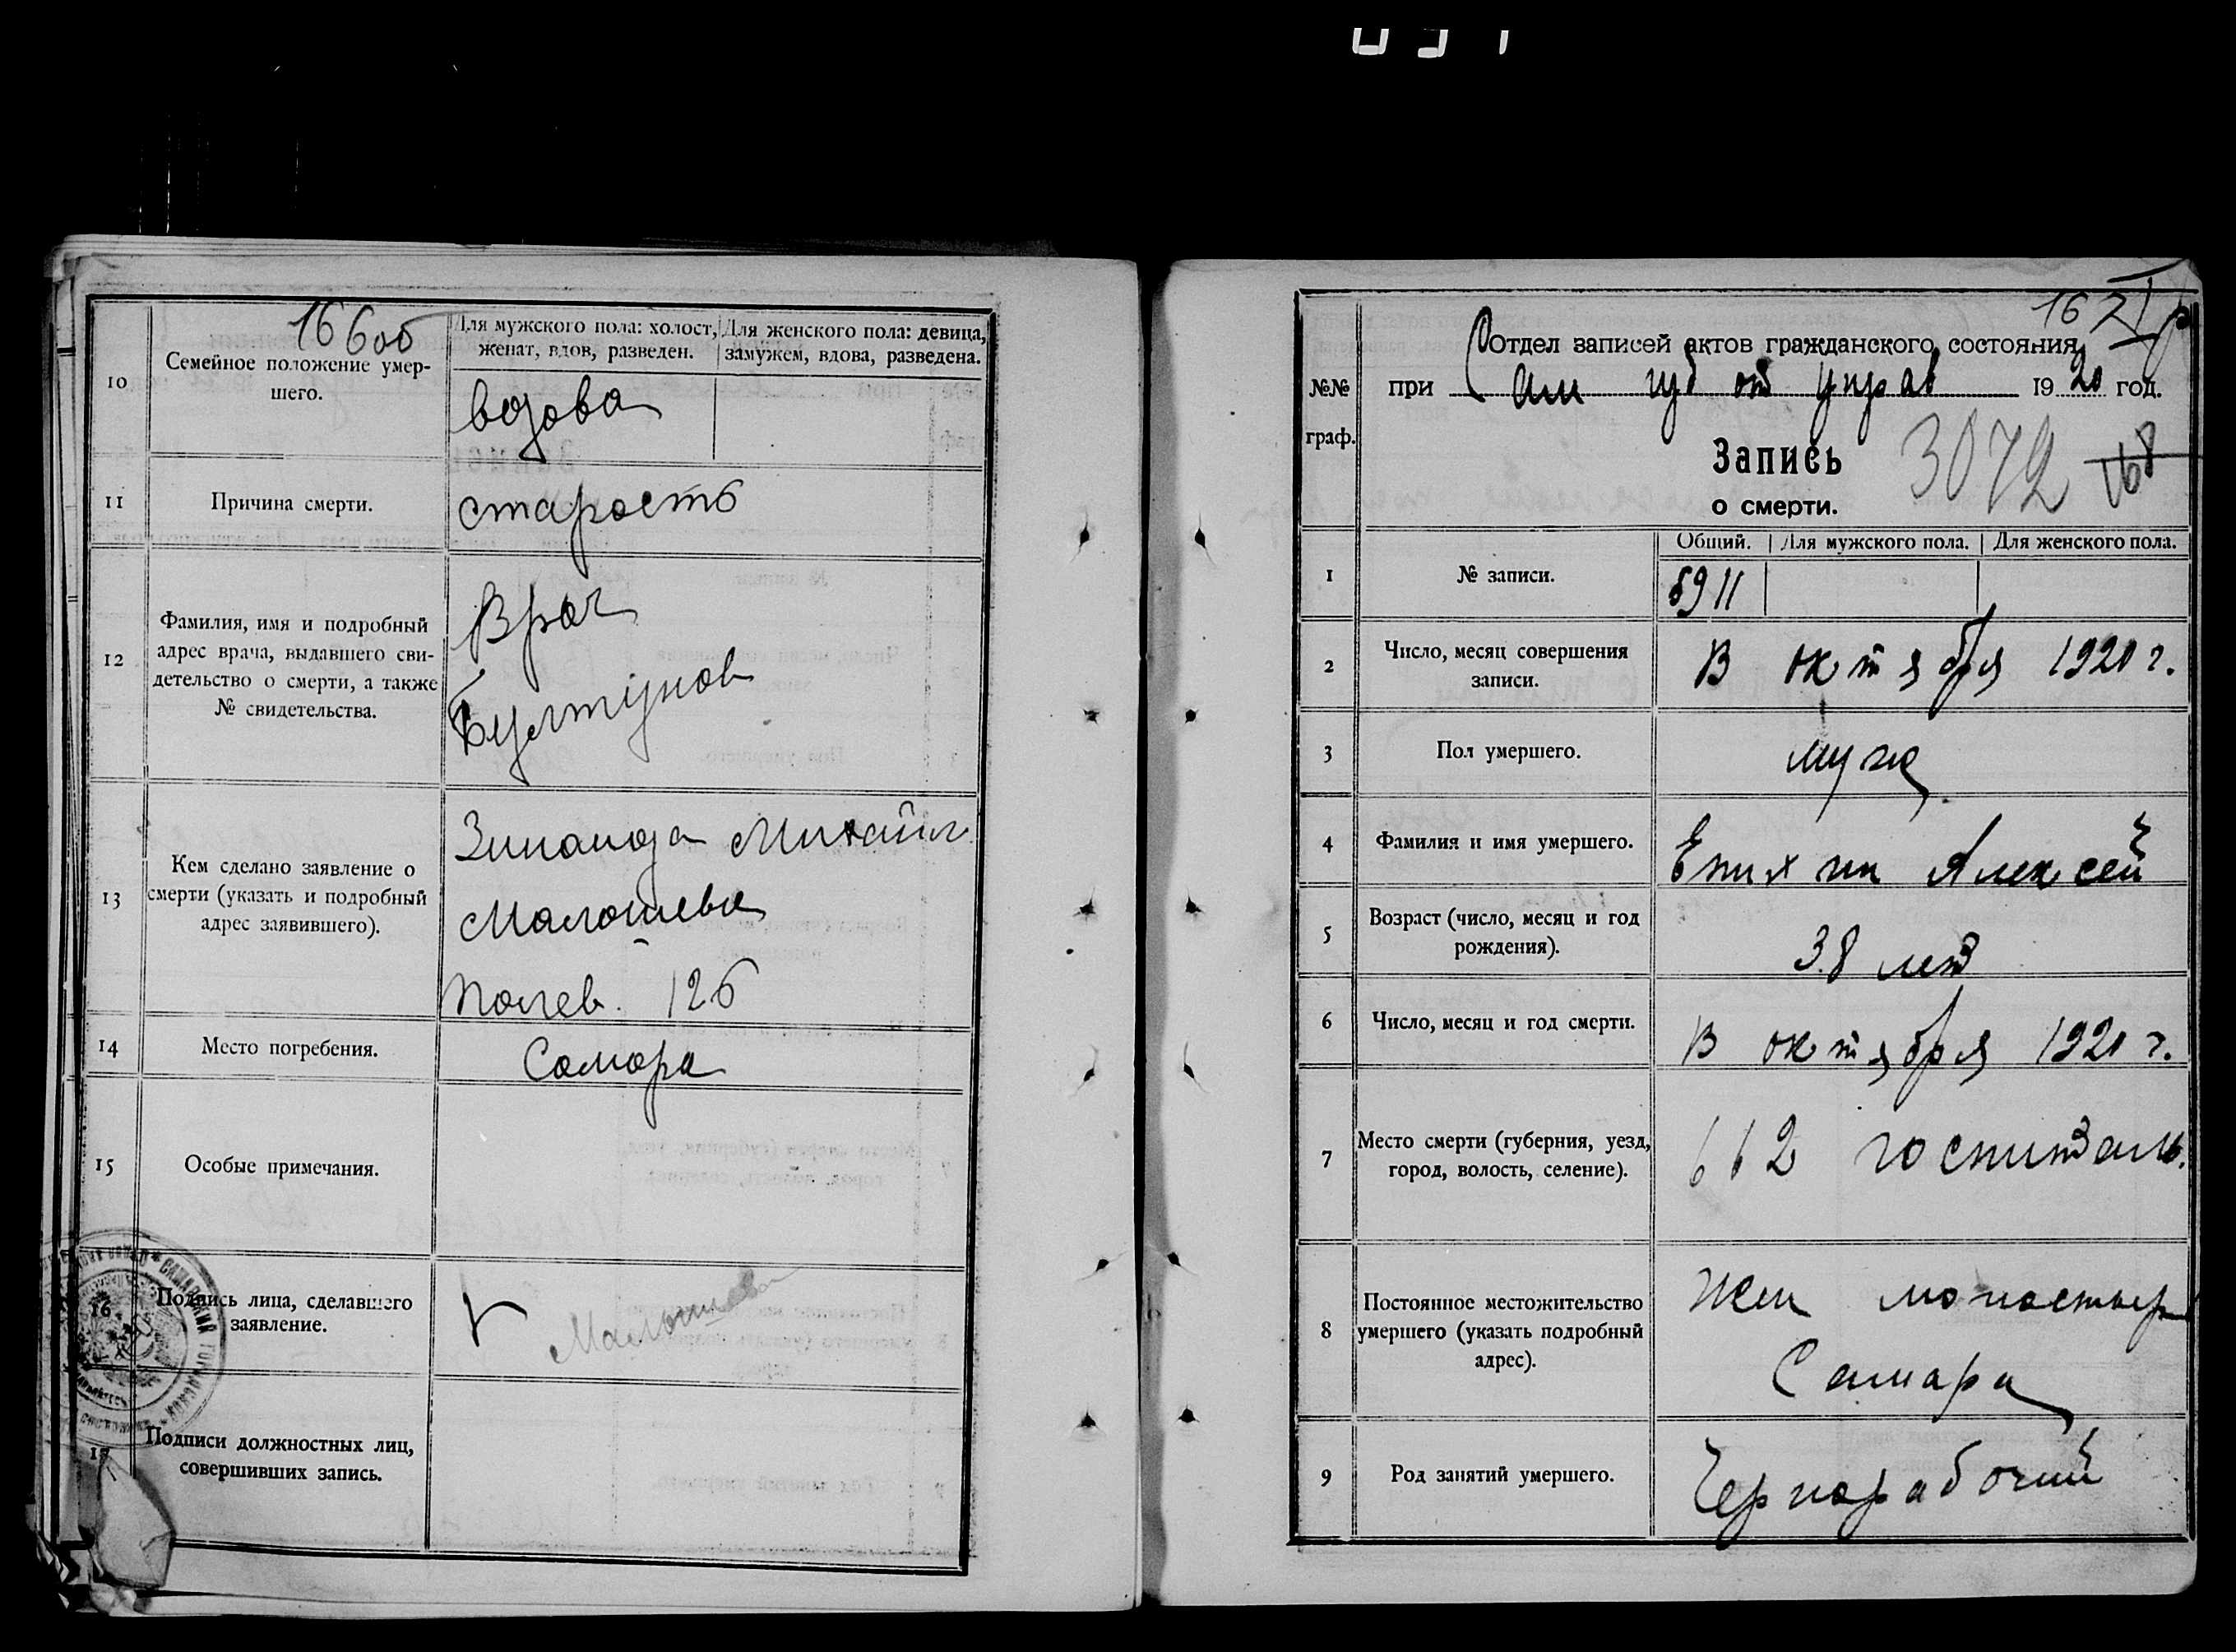 166об
10
Семейное положение умер-
шего.
Для мужского пола: холост,
женат, вдов, разведен.
Для женского пола: девица,
замужем, вдова, разведена.
вдова
11
Причина смерти.
старость
12
Фамилия, имя и подробный
адрес врача, выдавшего сви-
детельство о смерти, а также
№ свидетельства.
Врач
13
Кем сделано заявление о
смерти (указать и подробный
адрес заявившего).
Зинаида Михайл
Малышева
Полев. 126
14
Место погребения.
Самара
15
Особые примечания.
16
Подпись лица, сделавшего
заявление.
Малышева
17
Подписи должностных лиц,
совершивших запись.
167
№№
граф.
Отдел записей актов гражданского состояния
при Сам губ от управ 1920 год.
Запись
о смерти.
3072
168
1
№ записи.
Общий.
Для мужского пола.
Для женского пола.
6911
2
Число, месяц совершения
записи.
октября 1920 г.
3
Пол умершего.
муж
4
Фамилия и имя умершего.
Енихин Алексей
5
Возраст (число, месяц и год
рождения).
38 лет
6
Число, месяц и год смерти.
октября 1920 г.
7
Место смерти (губерния, уезд,
город, волость, селение).
662 госпиталь.
8
Постоянное местожительство
умершего (указать подробный
адрес).
Жен монастыр
Самара
9
Род занятий умершего.
Чернорабочий